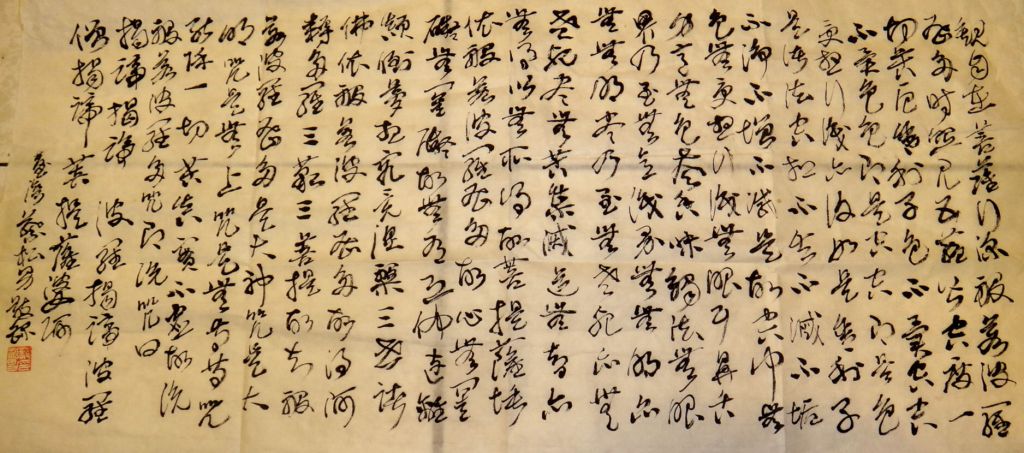 觀自在菩薩行深般若波羅
蜜多時照見五蘊皆空度一
切苦厄舍利子色不異空空
不異色色即是空空即是色
受想行識亦復如是舍利子
是諸法空相不生不滅不垢
不淨不增不減是故空中無
色無受想行識無眼耳鼻舌
身意無色聲香味觸法無眼
界乃至無意識界無無明亦
無無明盡乃至無老死亦無
老死盡無苦集滅道無智亦
無得以無所得故菩提薩埵
依般若波羅蜜多故心無罣
礙無罣礙故無有恐怖遠離
顛倒夢想究竟涅槃三世諸
佛依般若波羅蜜多故得阿
耨多羅三藐三菩提故知般
若波羅蜜多是大神咒是大
明咒是無上咒是無等等咒
能除一切苦真實不虛故說
般若波羅蜜多咒即說咒曰
揭諦揭諦 波羅揭諦 波羅
僧揭諦 菩提薩婆訶
臺灣蔡松男敬錄